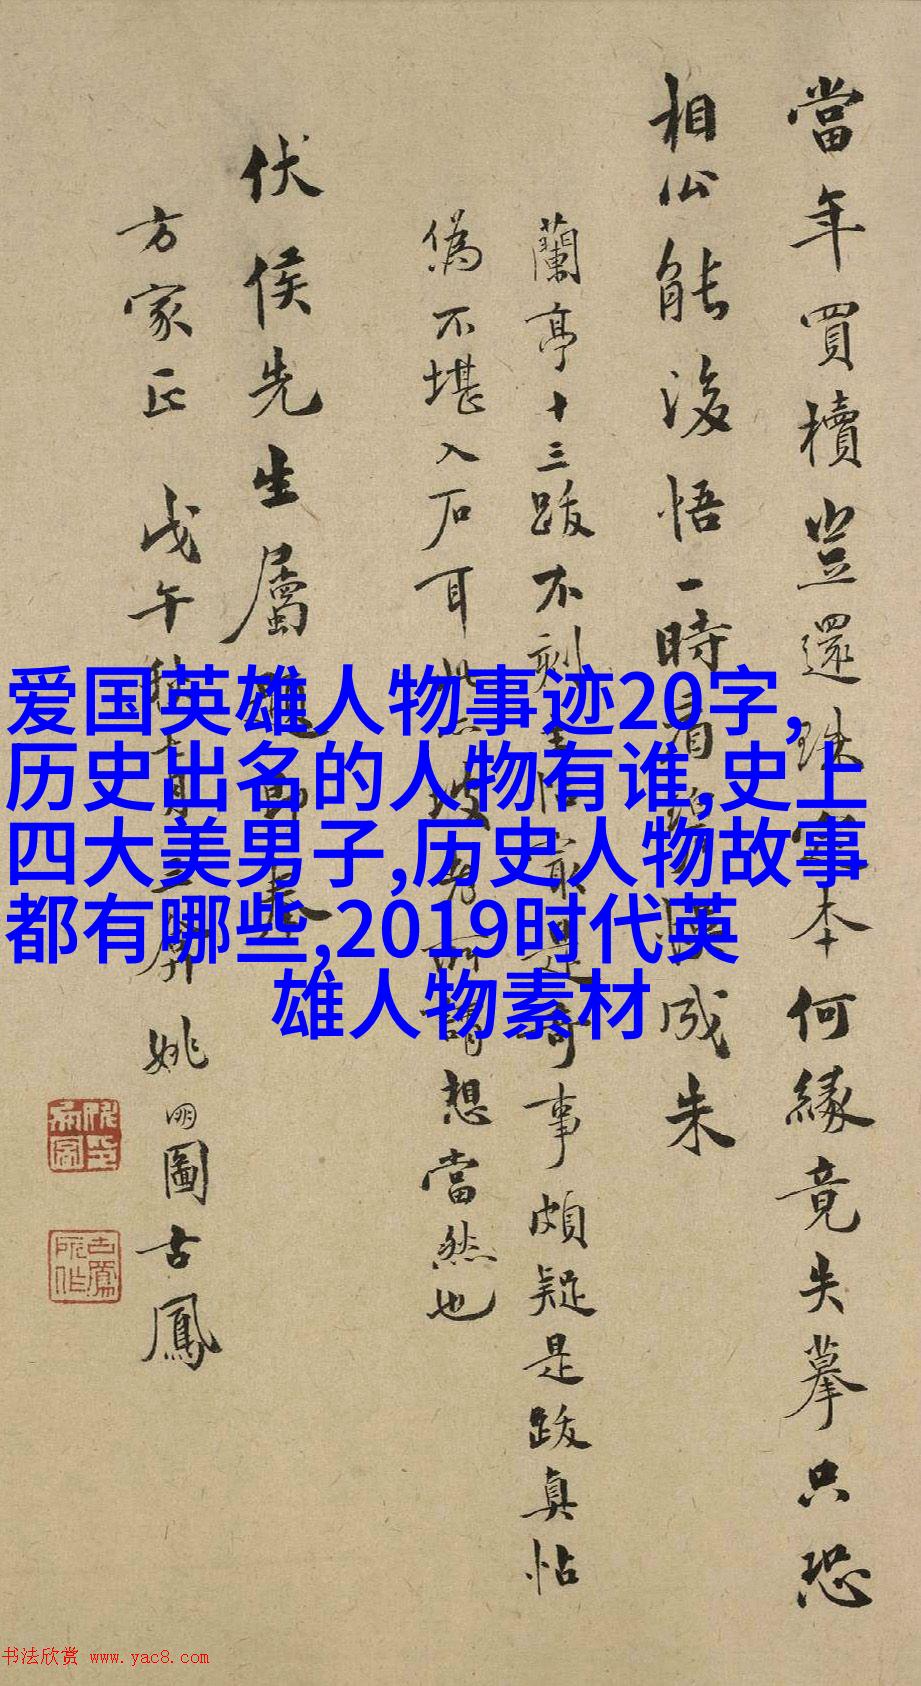 當年買櫝豈還珠宋本何緣竟失摹只恐
相公能後悟一時看碧成朱
蘭亭十三跋不刻是奇事頗疑是跋真帖
偽不堪入石耳此坡想當然也
伏侯先生屬題即奉
方家正 戊午秋七月三屏 姚 圖古鳳
爱国英雄人物事迹20字,
历史出名的人物有谁,史上
四大美男子,历史人物故事
都有哪些,2019时代英
雄人物素材
书法欣赏 www.yac8.com